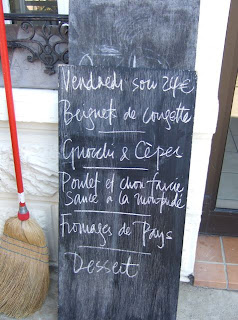 Vendredi soir 24€
Beignets de courgette
Gnocchi & Cèpes
Poulet et chou farcie
Sauce à la
Fromages de Pays
Dessert